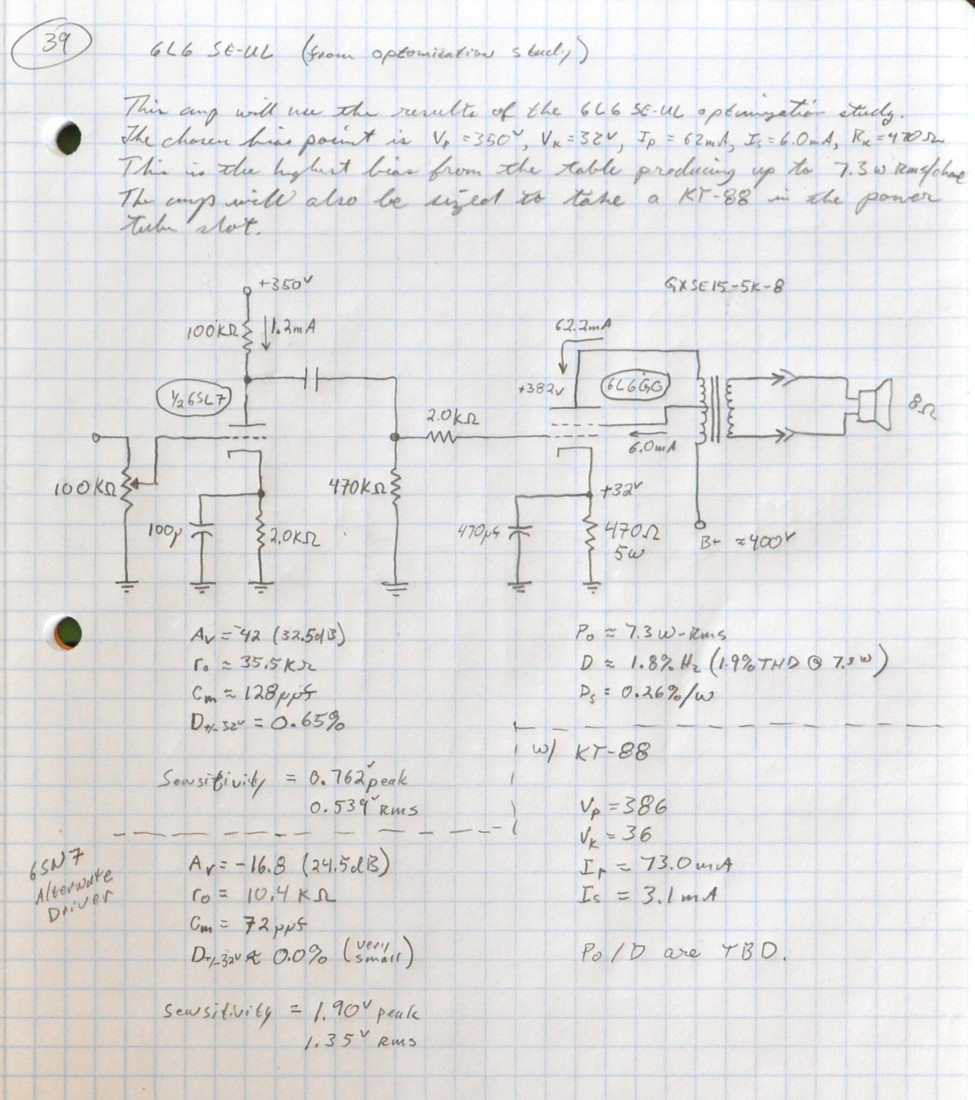 39
6L6 SE-UL (from optomization study)
This amp will use the results of the 6L6 SE-UL optimization study.
The chosen bias point is Vp = 350v, Vk = 32v, Ip = 62mA, Is = 6.0mA, Rk = 470Ω
This is the highest bias from the table producing up to 7.3w Rms/chan
The amp will also be sized to take a KT-88 in the power
tube slot.
+350v
GXSE15-5K-8
100KΩ
1.2mA
62.2mA
+382v
6L6GC
1/2 6SL7
2.0KΩ
8Ω
6.0mA
100KΩ
470KΩ
+32v
100µ
2.0KΩ
470µf
470Ω
5w
B+ ≈400v
Av = -42 (32.5dB)
ro ≈ 35.5KΩ
Cm ≈ 128µµf
D+/-32v = 0.65%
Sensitivity = 0.762v peak
0.539v rms
Po ≈ 7.3w-Rms
D ≈ 1.8% H2 (1.9% THD @ 7.3w)
Ds = 0.26%/w
w/ KT-88
Vp = 386
Vk = 36
Ip = 73.0mA
Is = 3.1mA
Po/D are TBD.
6SN7
Alternate
Driver
Av = -16.8 (24.5dB)
ro = 10.4KΩ
Cm = 72µµf
D+/-32v ≈ 0.0% (very small)
Sensitivity = 1.90v peak
1.35v rms